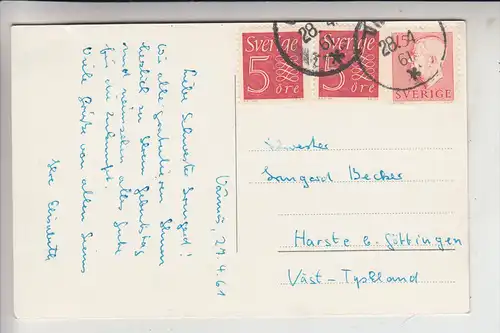 Sverige
5
öre
Sverige
5
öre
SVERIGE
28 4
61
28. 4
61
Värnamo, 27.4.61
Liebe Schwester Irmgard!
Wir alle gratulieren Ihnen
herzlich zu Ihrem Geburtstag
und wünschen alles Gute
für die Zukunft.
Viele Grüße von allen
Ihre Elisabeth
Schwester
Irmgard Becker
Harste b. Göttingen
Väst-Tyskland